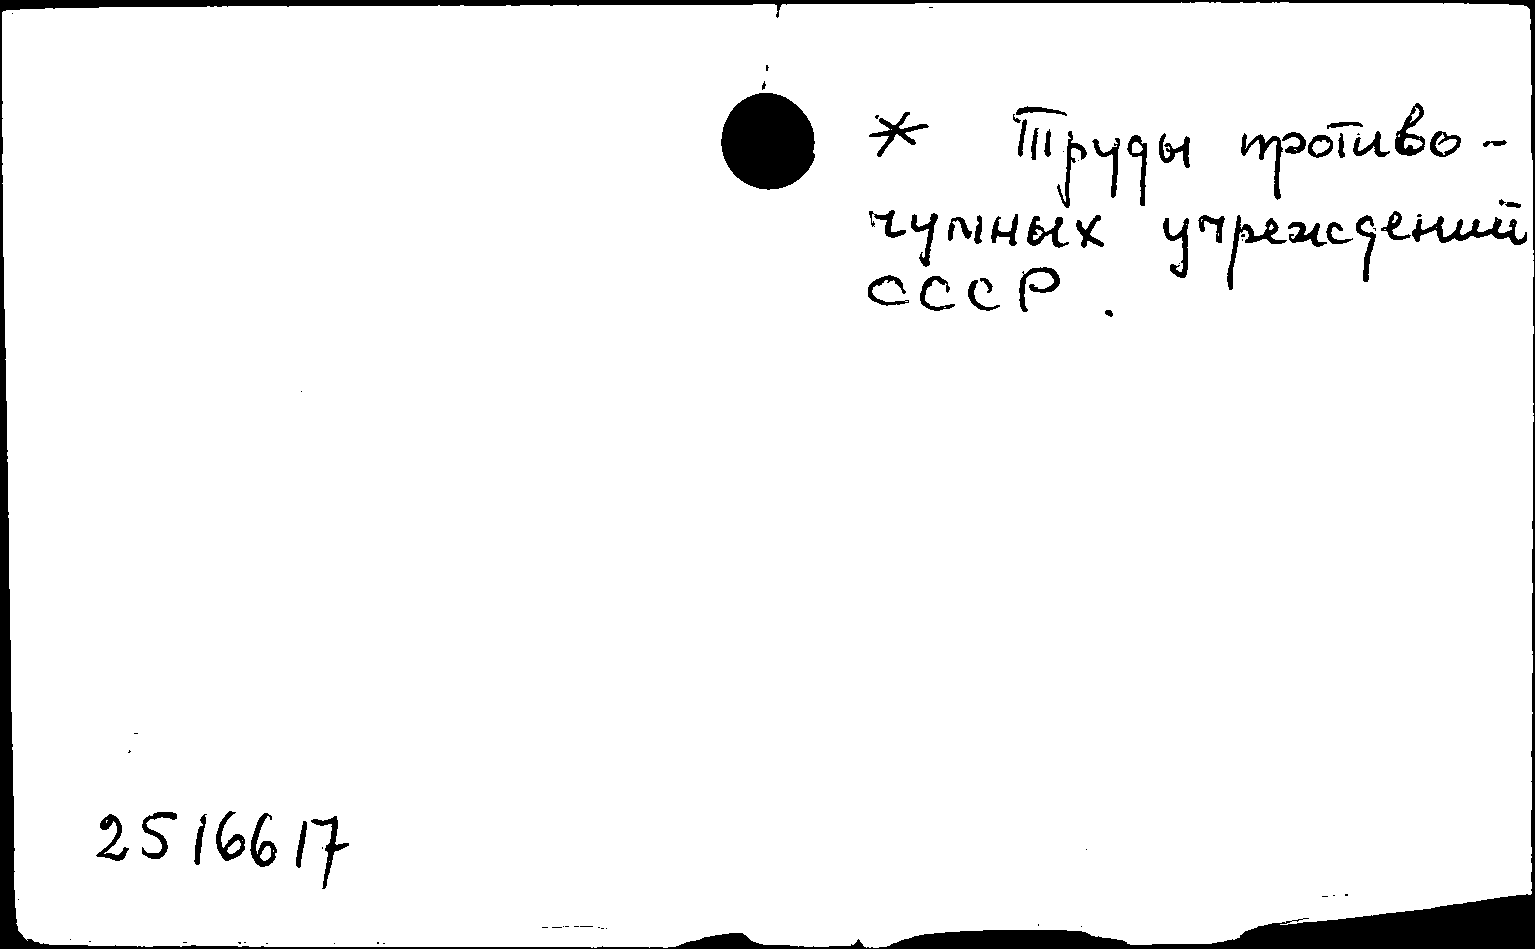 * Труды противо-
чумных учреждений
СССР.
2516617